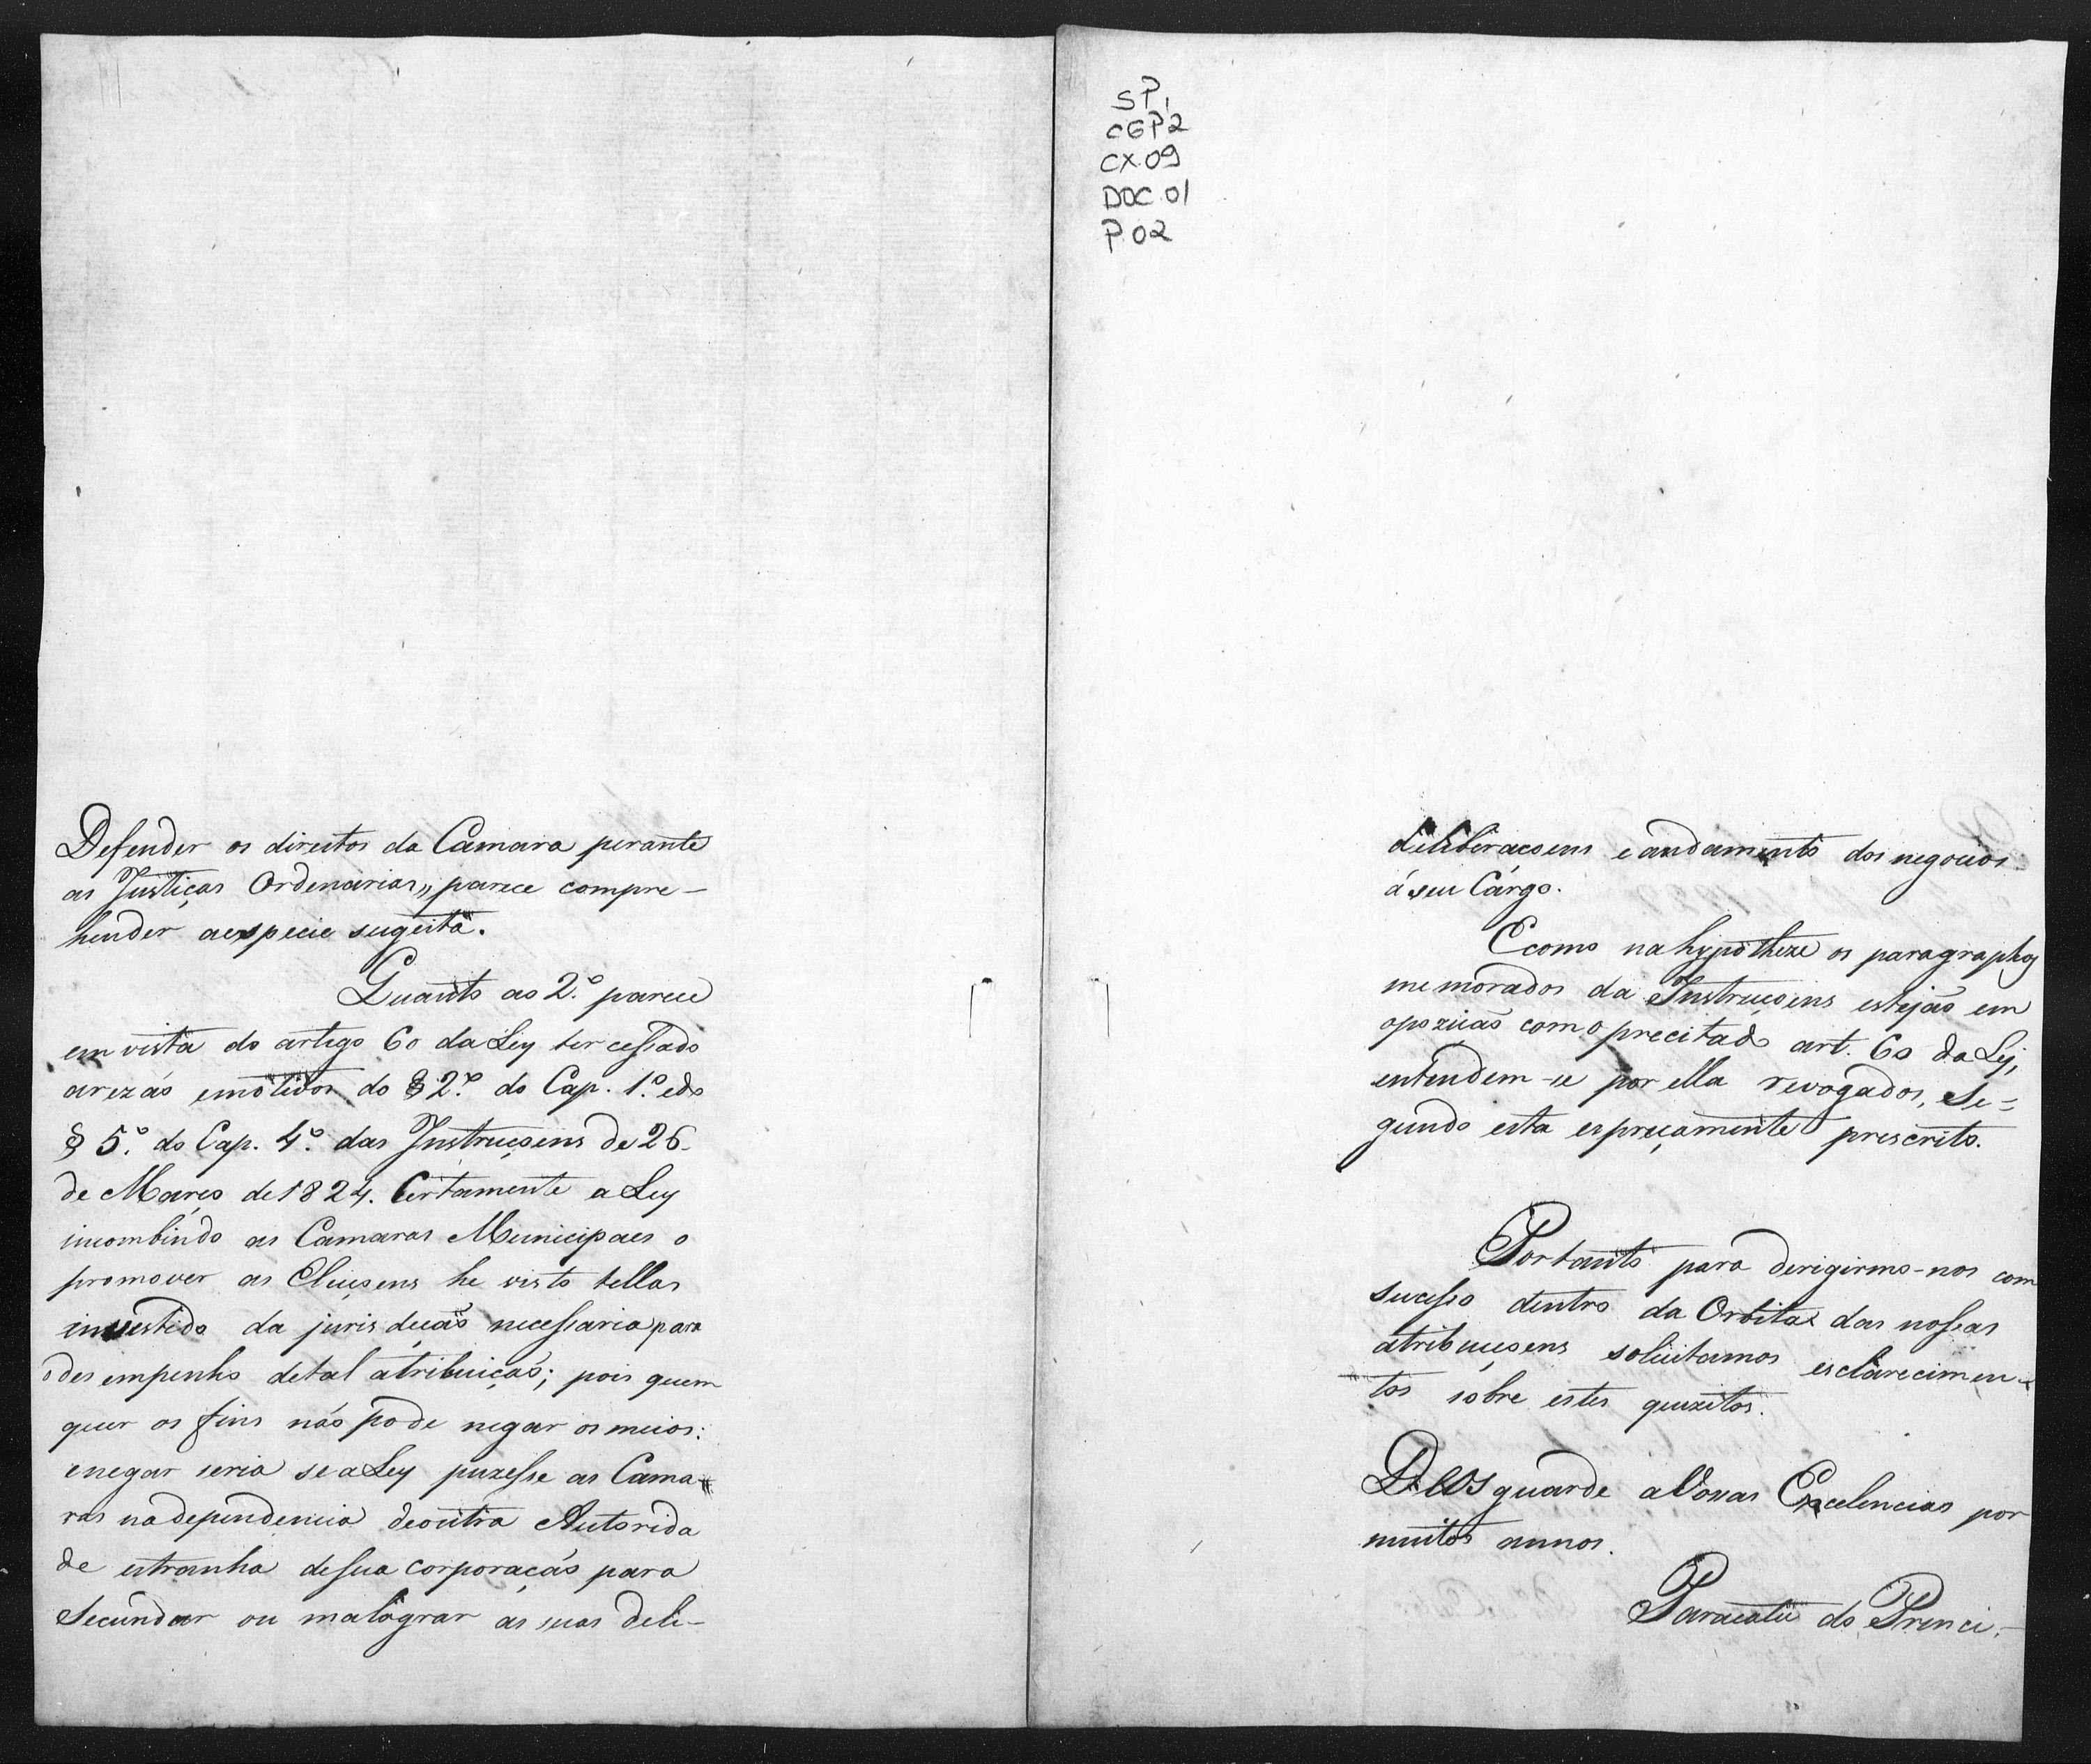 Defender os direitos da Camara perante
as Justiças Ordenarias,, parece compre-
hender aespecie sugeita.
Quanto ao 2.º parece
em vista do artigo 60 da Ley ter cessado
arezaõ emotivos do § 2.º do Cap. 1.º edo
§ 5.º do Cap. 4.º das Instruçoens de 26
de Março de 1824. Certamente a Ley
incombindo as Camaras Municipaes o
promover as Eleiçoens he visto tellas
investido da jurisdicaõ necessaria para
odesempenho detal atribuiçaõ; pois quem
quer os fins naõ pode negar os meios:
enegar seria se a Ley puzesse as Cama-
ras nadependencia deoutra Autorida
de estranha desua corporaçaõ para
Secundar ou malograr as suas deli-
SP,
CGP2
CX.09
DOC.01
P.02
deliberacoens eandamento dos negocios
á seu Cárgo.
Ecomo nahypotheze os paragraphos
memorados da Instruçoens estejaõ em
opoziçaõ como precitado art. 60 da Ley,
entendem-se por ella revogados, Se-
gundo esta expreçamente prescrito.
Portanto para derigirmo-nos com
sucesso dentro da Orbita das nossas
atribuiçoens solicitamos esclarecimen-
tos sobre estes quezitos.
Deos guarde aVossas Excelencias por
muitos annos.
Paracatu do Princi-